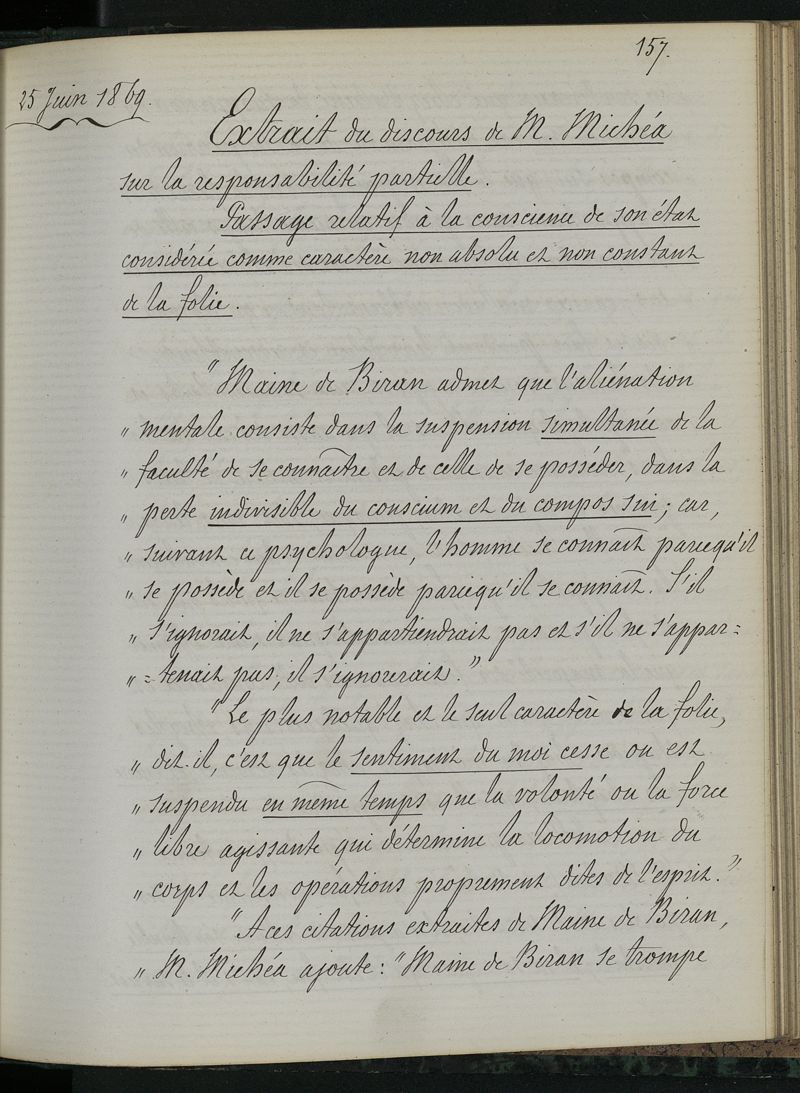 157.
25 Juin 1869.
Extrait du discours de M. Michéa
sur la responsabilité partielle.
Passage relatif à la conscience de son état
considérée comme caractère non absolu et non constant
de la folie.
"Maine de Biran admet que l'aliénation
" mentale consiste dans la suspension simultanée de la
" faculté de se connaître et de celle de se posséder, dans la
" perte indivisible du conscium et du compos sui; car,
" suivant ce psychologue, l'homme se connaît parcequ'il
" se possède et il se possède parcequ'il se connaît. S'il
" s'ignorait, il ne s'appartiendrait pas et s'il ne s'appar=
" =tenait pas, il s'ignorerait."
"Le plus notable et le seul caractère de la folie,
" dit-il, c'est que le sentiment du moi cesse ou est
" suspendu en même temps que la volonté ou la force
" libre agissante qui détermine la locomotion du
" corps et les opérations proprement dites de l'esprit."
"A ces citations extraites de Maine de Biran,
" M. Michéa ajoute: "Maine de Biran se trompe